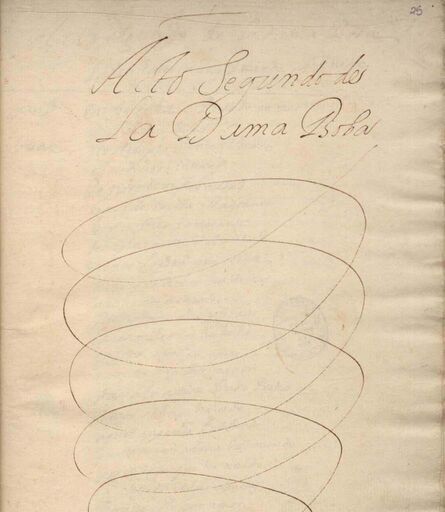 25
Acto Segundo de
La Dama Boba